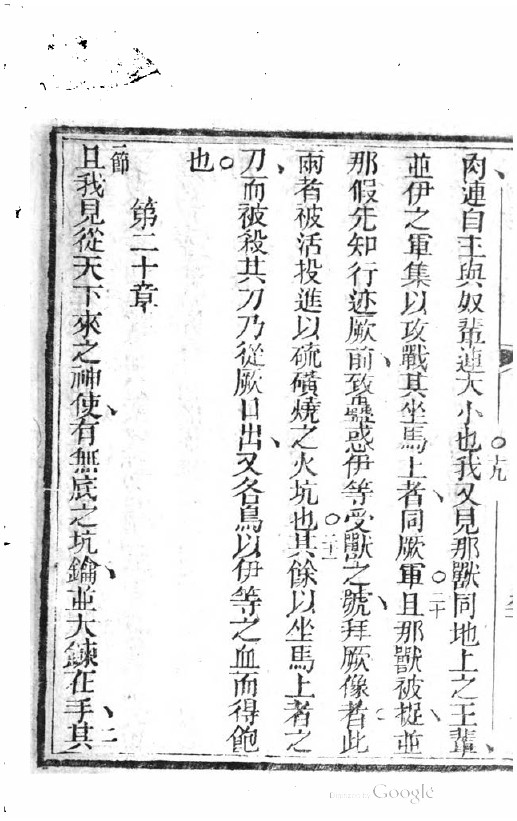 肉連自主與奴輩連大小也○十九我又見那獸同地上之王輩、
並伊之軍集以攻戰其坐馬上者、同厥軍○二十且那獸被捉、並
那假先知行迹厥前、致蠱惑伊等受獸之號、拜厥像者此二
兩者被活投進以硫磺燒之火坑也○二十一其餘以坐馬上者之
刀而被殺、其刀乃從厥口出、又各鳥以伊等之血而得飽
也○
第二十章
一節
且我見從天下來之神使、有無底之坑鑰、並大鍊在手、二其
Digitized by Google